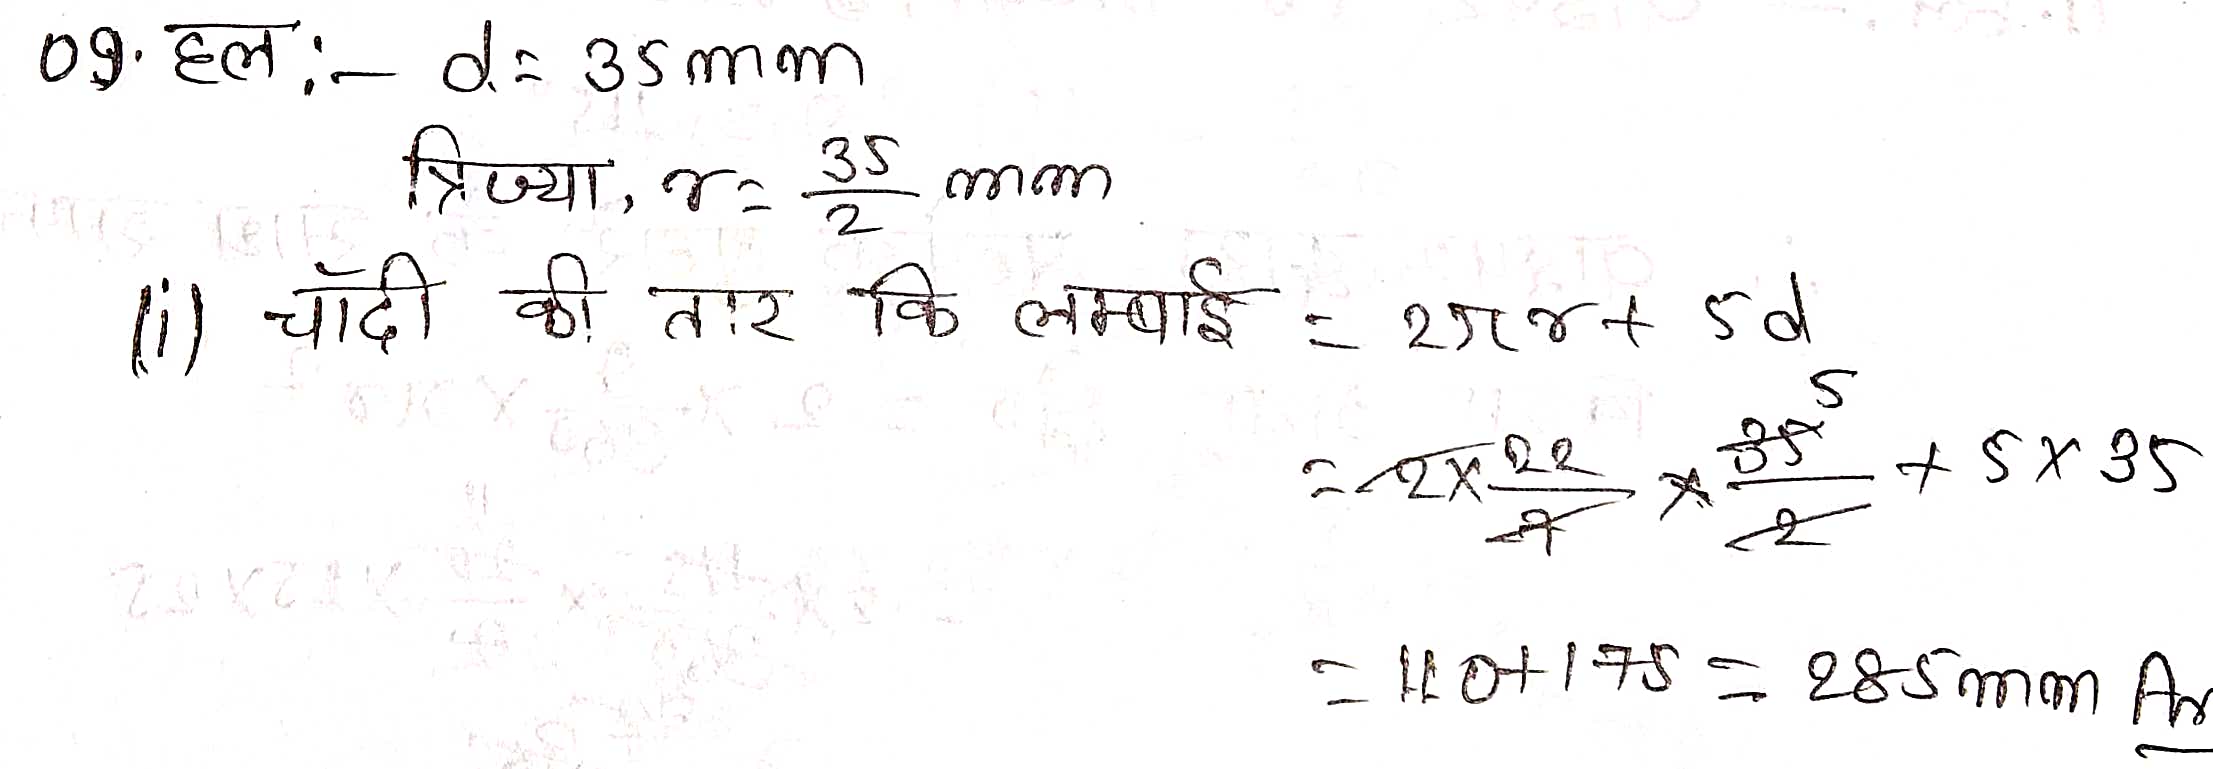 09. हल :- d = 35mm
त्रिज्या, r = 35/2 mm
(i) चाँदी की तार कि लम्बाई = 2πr + 5d
= 2 × 22/7 × 35/2 + 5 × 35
5
= 110 + 175 = 285mm